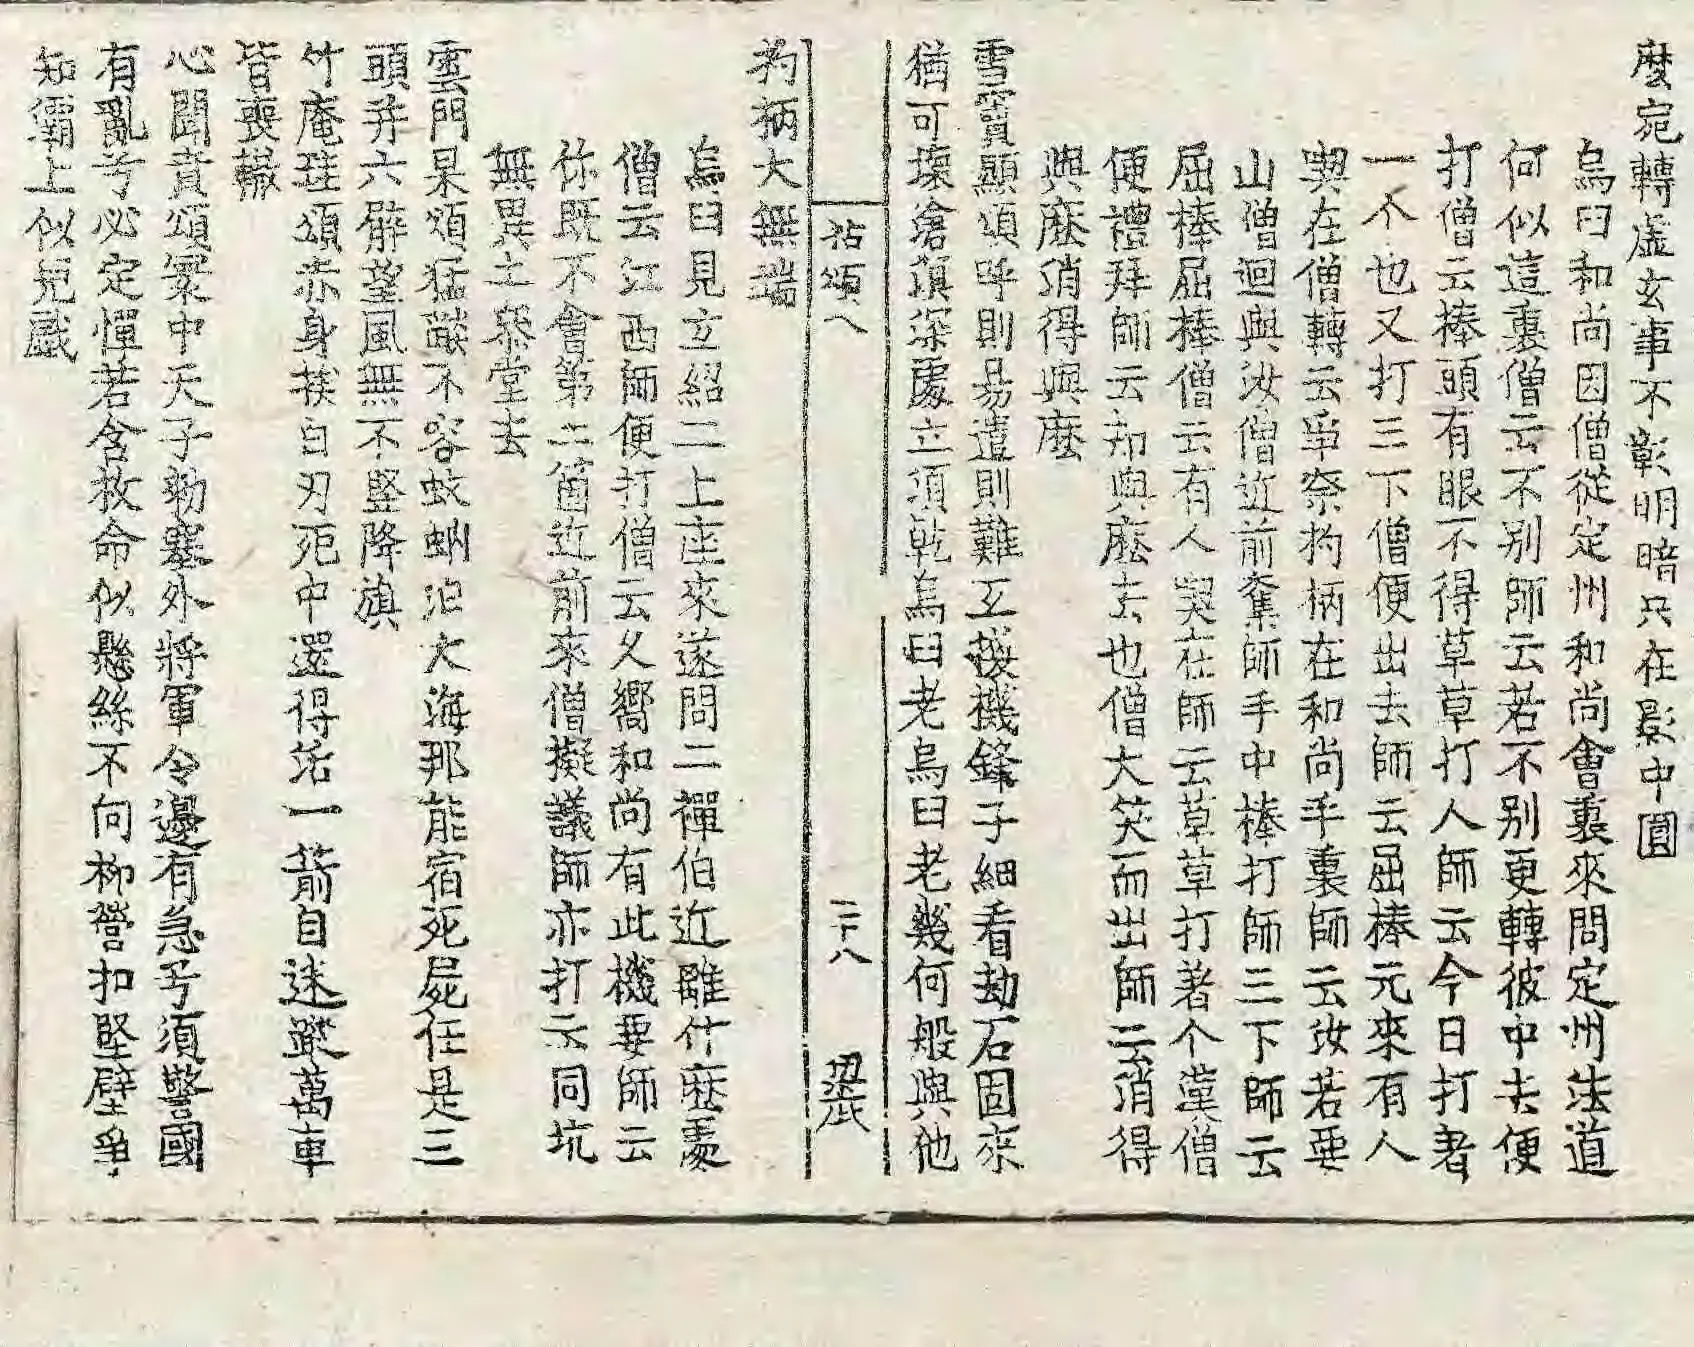 麼宛轉虛玄事不彰明暗只在影中圓
烏臼和尚因僧從定州和尚會裏來問定州法道
何似這裏僧云不別師云若不別更轉彼中去便
打僧云棒頭有眼不得草草打人師云今日打著
一个也又打三下僧便出去師云屈棒元來有人
喫在僧轉云爭奈杓柄在和尚手裏師云汝若要
山僧迴與汝僧近前奪師手中棒打師三下師云
屈棒屈棒僧云有人喫在師云草草打著个漢僧
便禮拜師云却與麼去也僧大笑而出師云消得
與麼消得與麼
雪竇顯頌呼則易遣則難互換機鋒子細看劫石固來
猶可壞滄溟深處立須乾烏臼老烏臼老幾何般與他
拈頌八 二十八
杓柄大無端
烏臼見玄紹二上座來遂問二禪伯近離什麼處
僧云江西師便打僧云久嚮和尚有此機要師云
你旣不會第二箇近前來僧擬議師亦打云同坑
無異土叅堂去
雲門杲頌猛燄不容蚊蚋泊大海那能宿死屍任是三
頭幷六臂望風無不竪降旗
竹庵珪頌赤身挨白刃死中還得活一箭自迷蹤萬車
皆喪轍
心聞賁頌寰中天子勑塞外將軍令邊有急兮須警國
有亂兮必定憚若含枚命似懸絲不向柳營扣堅壁爭
知霸上似兒戱